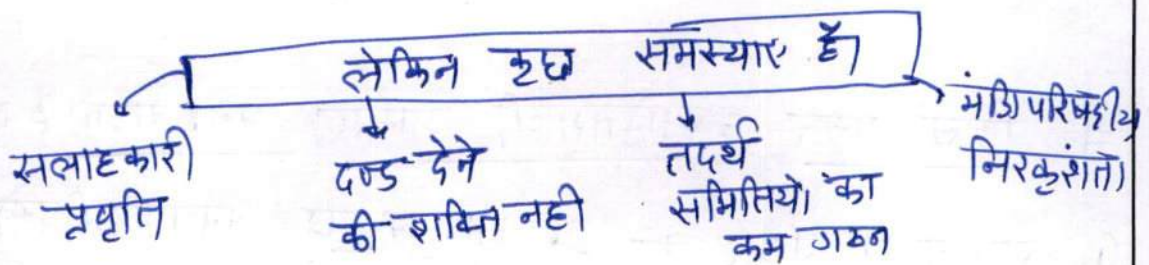 लेकिन कुछ समस्याए है।
सलाहकारी
प्रवृति
दण्ड देने
की शक्ति नही
तदर्थ
समितियो का
कम गठन
मंत्रिपरिषदीय
निरकुंशता